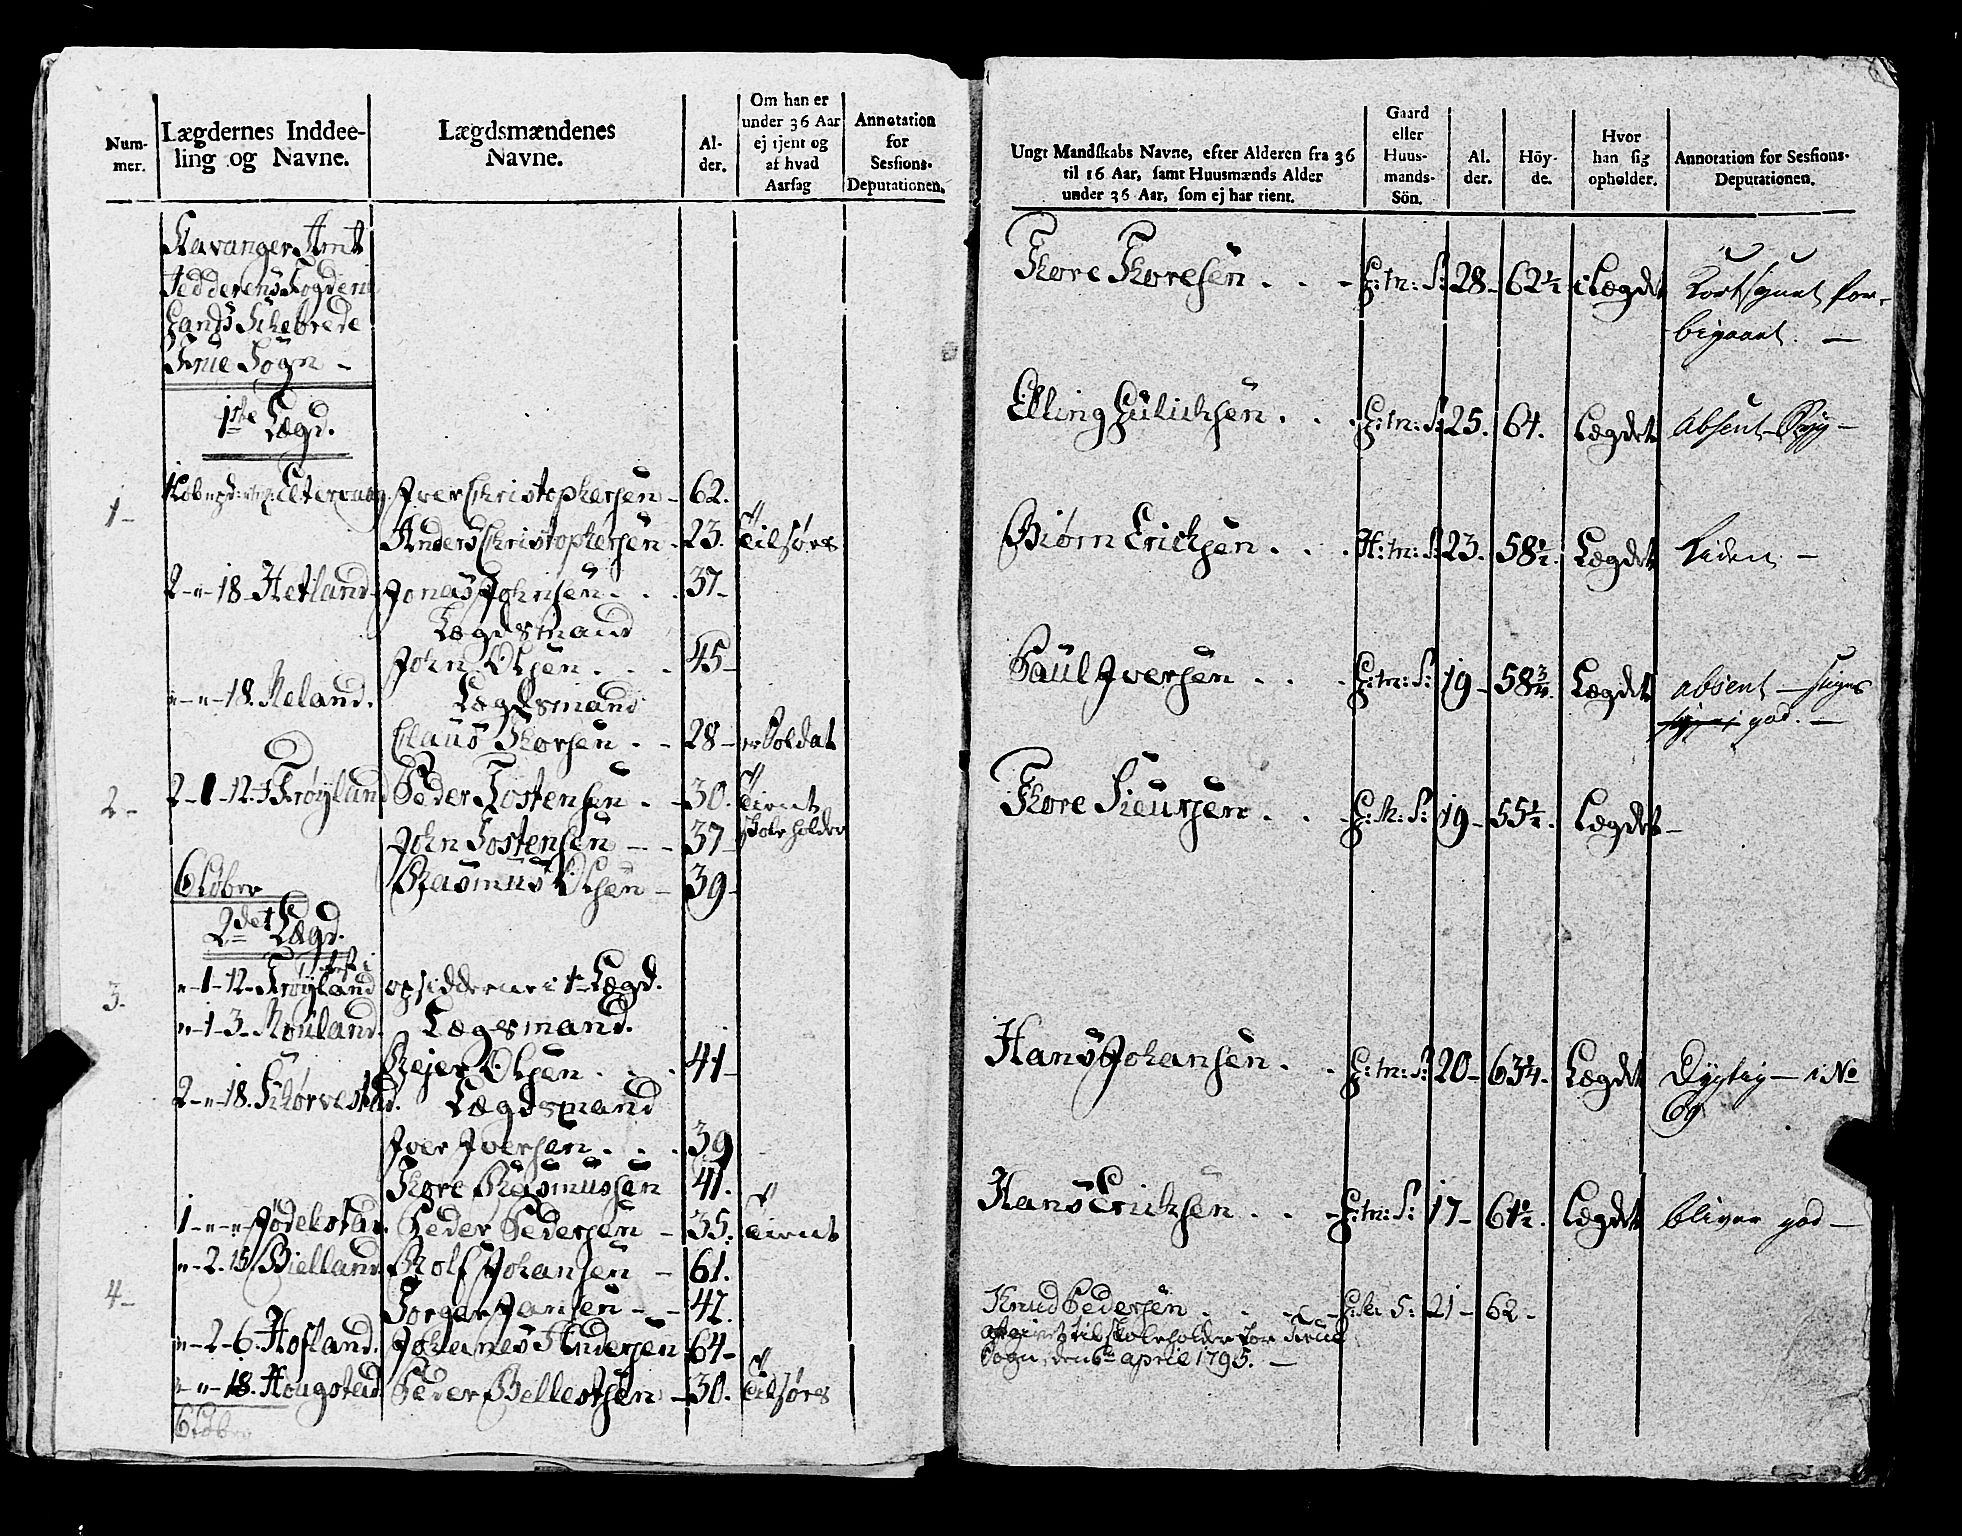 Num-
mer.
Lægdernes Inddee-
ling og Navne.
Lægdsmændenes
Navne.
Al-
der.
Om han er
under 36 Aar
ej tjent og
af hvad
Aarsag
Annotation
for
Sessions-
Deputationen.
Stavanger Amt
Jedderens Fogderie
Lands Schebrede
Frue Sogn -
1ste Lægd.
1- Ætervaag. Iver Christophersen - 62.
Anders Christophersen - 23. Tilsørs
2 - " - 18 - Hetland - Jonas Johnsen . . . 37 -
Lægdsmand
John Olsen . . . 45 -
" - " - 18. Meland. Lægdsmand
Claus Thorsen . - 28 - er Soldat
2 - 2 - 1 - 12 - Frøyland Peder Tostensen . - 30. tient
John Tostensen - - 37 - Skoleholder
6 Løber Rasmus Olsen - 39 -
2det Lægd.
3. " - 1 - 12 - Frøyland opsidderne i 1te Lægd.
" - 1 - 3 - Rouland. Lægsmand.
Rejer Olsen . . . 41 -
2 - " - 18. Skørvestad. Lægdsmand
Iver Iversen . . . 39
Thore Rasmussen 41.
1 - " - " - Jødelstad. Peder Pedersen - 35. tient
" - 2. 15 Bielland. Rolf Johansen - 61.
4 - Torger Jansen - - 47.
" - 2 - 6. Hofland. Johannes Andersen 64 -
" - " - 18. Hougstad. Peder Bellestsen - 30. Tilsørs
6 Løber
Ungt Mandskabs Navne, efter Alderen fra 36
til 16 Aar, samt Huusmænds Alder
under 36 Aar, som ej har tient.
Gaard
eller
Huus-
mands-
Sön.
Al.
der.
Höy-
de.
Hvor
han sig
opholder.
Annotation for Sessions-
Deputationen.
Thore Thoresen . . - G: m: S: 28 - 62½ i Lægdet Kortsynet for-
bigaaet. -
Elling Gulichsen . . . G: m: S: 25. 64. Lægdet absent - Syg -
Biørn Erichsen . . . H: m: S: 23. 58½. Lægdet Liden -
Paul Iversen . . - G: m: S: 19 - 58¾ Lægdet absent - siges
god. -
Thore Sieursen . . - G: M: S: 19 - 55½. Lægdet -
Hans Johansen . . G: m: S: 20 - 63¼. Lægdet Dygtig - i No
69
Hans Erichsen . . - G: m: S: 17 - 61½. Lægdet bliver god -
Knud Pedersen . . . - G: m: S: 21 - 62 -
afgivet til skoleholder for Frue
Sogn, den 6te april 1795. -